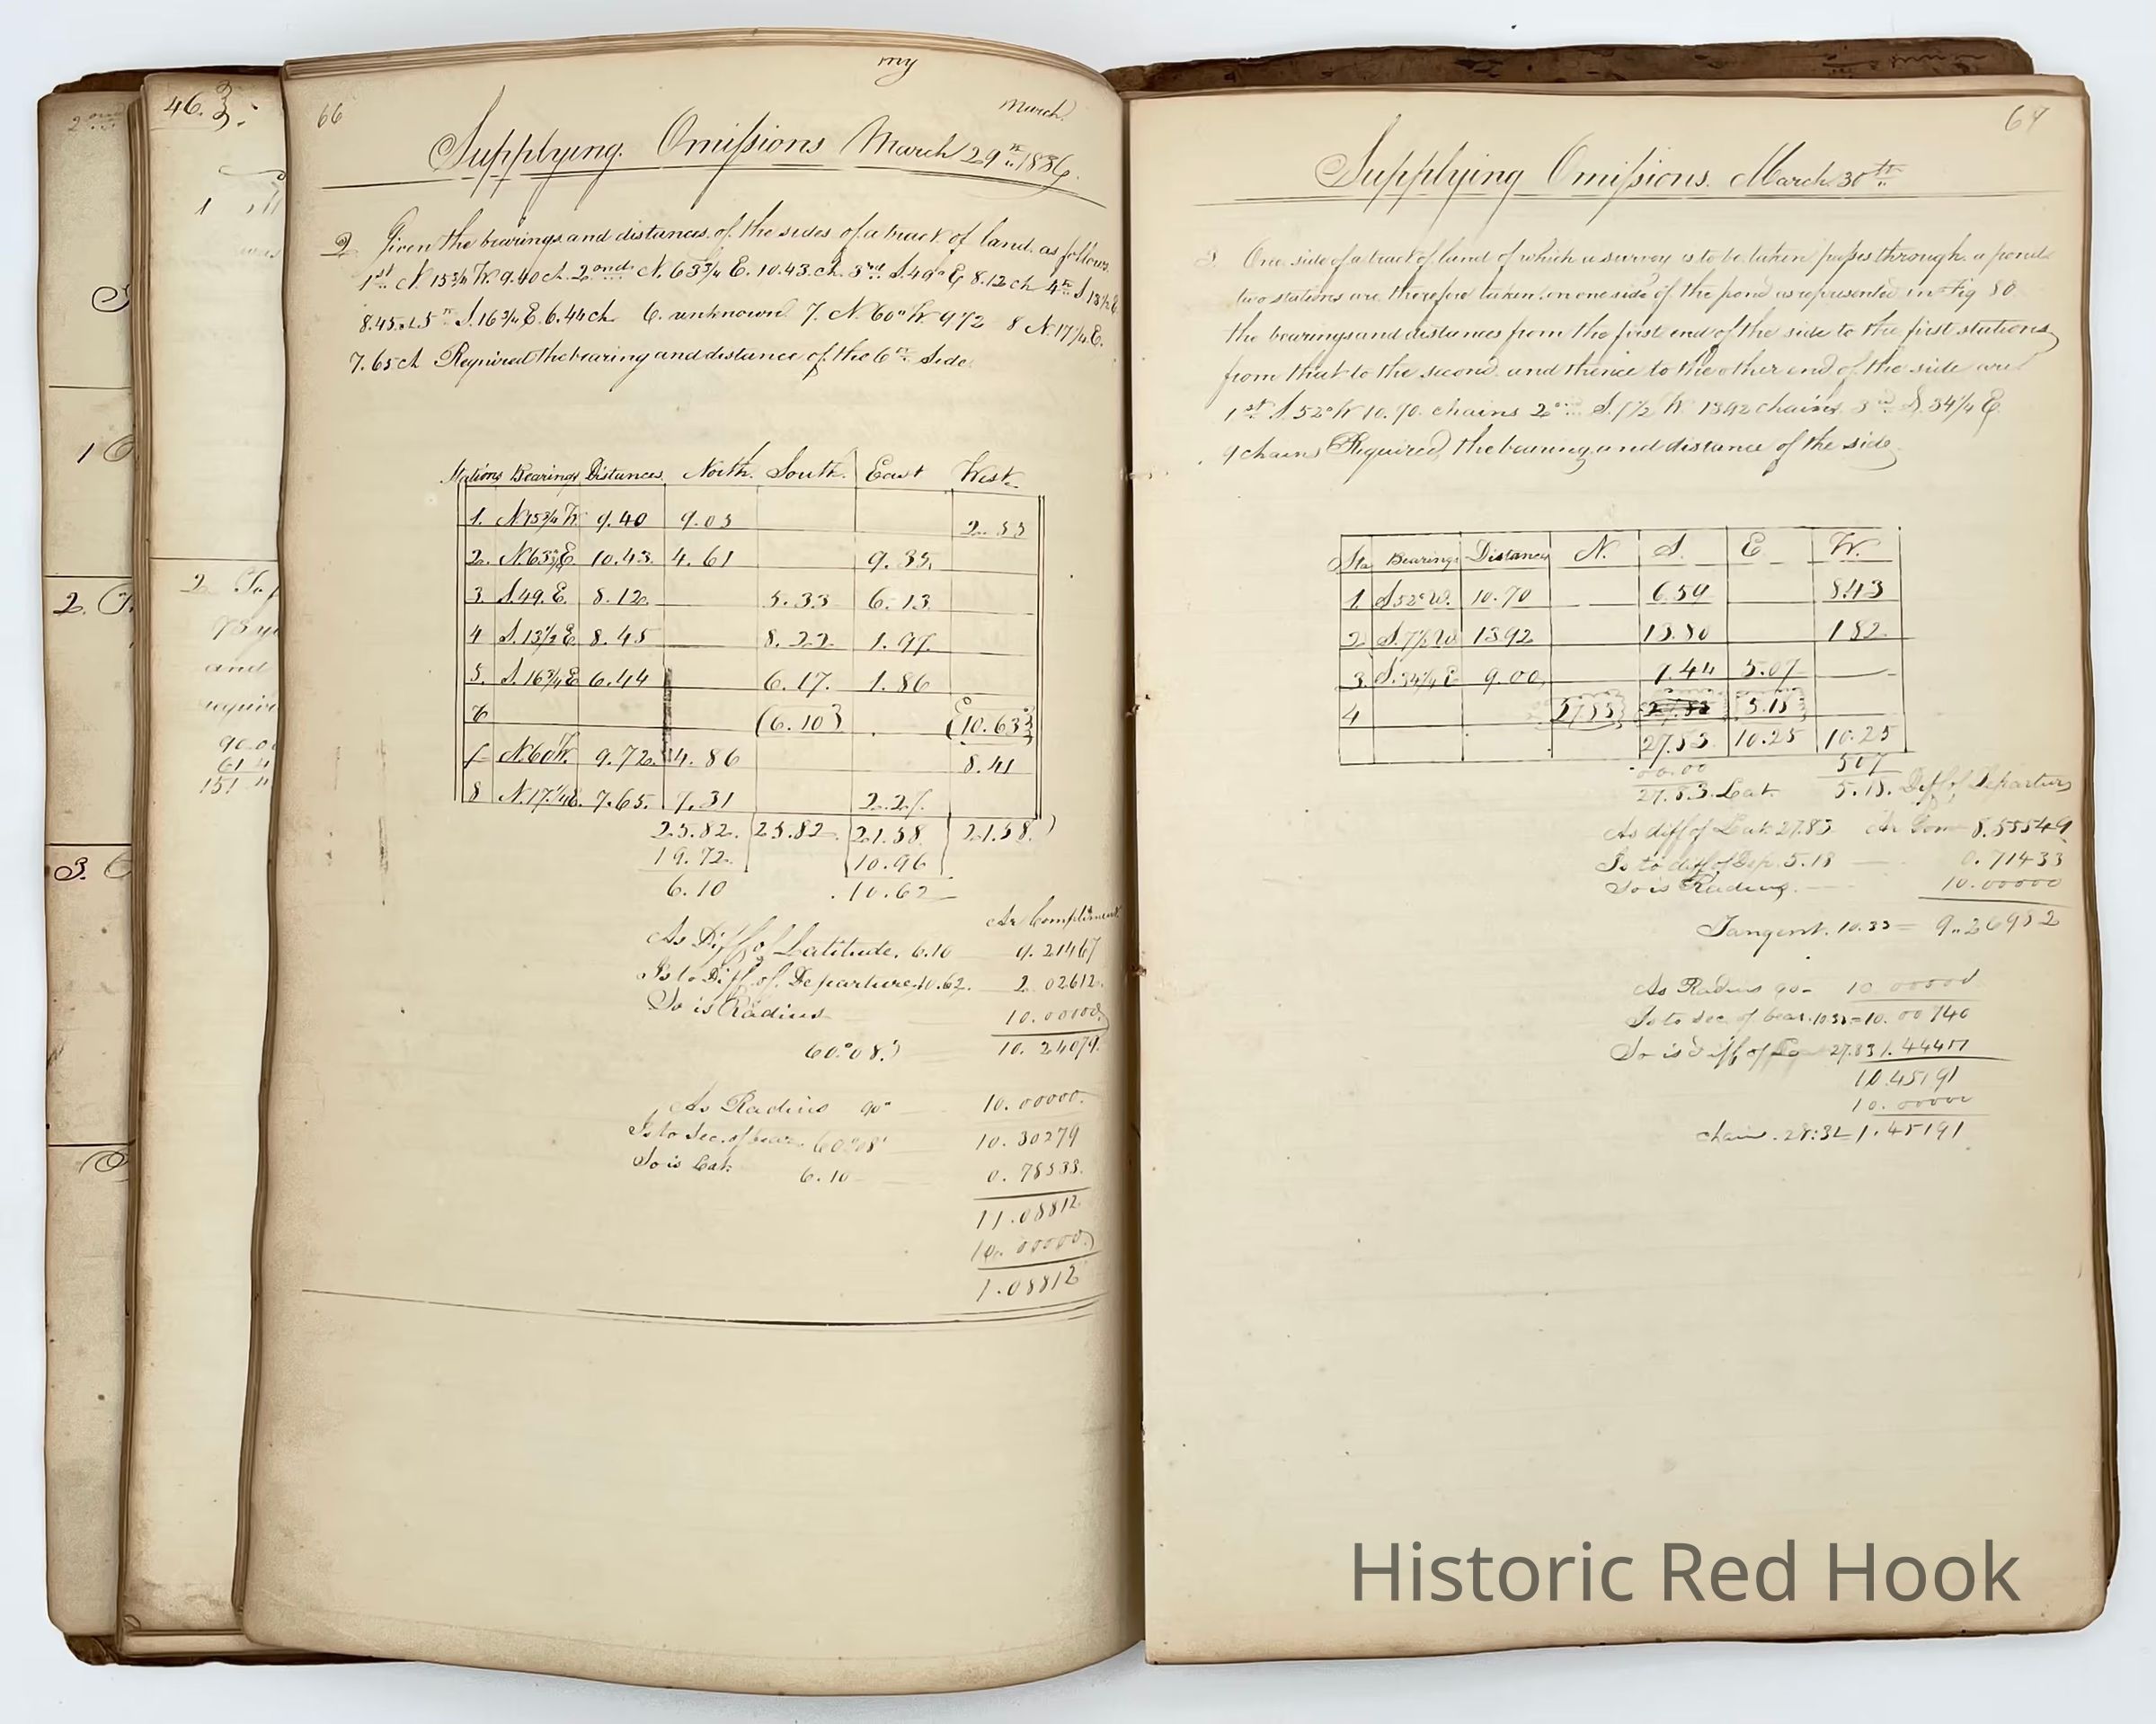 46. 3.
1
2
1
2.
3.
my
66
March
Supplying Omissions March 29th 1836.
2 Given the bearings and distances of the sides of a tract of land as follows
1st N. 15 3/4 W. 9.40 ch. 2ond N. 63 3/4 E. 10.43. ch. 3rd S. 49° E 8.12 ch 4th S 13 1/2 E.
8.45. ch 5th S. 16 3/4 E. 6.44 ch 6. unknown 7. N. 60° W. 972 8 N. 17 1/4 E.
7.65 ch Required the bearing and distance of the 6th Side
Stations Bearings Distances North. South. East West
1. N. 15 3/4 W 9.40 9.05 2.55
2. N. 63 3/4 E. 10.43. 4.61 9.35.
3. S. 49. E. 8.12 5.33 6.13
4 S. 13 1/2 E 8.45 8.22 1.97.
5. S. 16 3/4 E 6.44 6.17. 1.86
6 (6.10) (10.63)
7 N. 60 W. 9.72. 4.86 8.41
8 N. 17. 1/4 E. 7.65. 7.31 2.27.
25.82. 25.82. 21.58. 21.58.
19.72. 10.96
6.10 10.62
Ar Compliment
As Diff of Latitude. 6.10 9.21467
Is to Diff. of. Departure 10.62. 2 02612
So is Radius 10.00000
60.°08.' 10. 24079.
As Radius 90° 10.00000.
Is to Sec. of bear. 60°08' 10.30279
So is Lat. 6.10 0.78533.
11.08812
10.00000
1.08812
67
Supplying Omissions. March 30th
3 One side of a tract of land of which a survey is to be taken passes through a pond
two stations are therefore taken on one side of the pond as represented in Fig 80
the bearings and distances from the first end of the side to the first stations
from that to the second and thence to the other end of the side are
1st S. 52° W 10.70. chains 2ond S. 7 1/2 W 1392 chains 3rd S. 34 1/4 E.
9 chains Required, the bearing and distance of the side
Sta Bearings Distance N. S. E W.
1. S 52° W. 10.70 6.59 8.43
2 S. 7 1/2 W 1392 13.80 1 82
3. S. 34 1/4 E 9.00 7.44 5.07
4 5.18
27.83 10.25 10.25
00.00 507
27.83. Lat. 5.18. Diff of Departure
As diff of Lat. 27.83 Ar Com 8.55549
Is to diff of Dep. 5.18 0.71433
So is Radius. 10.00000
Tangent. 10.33 = 9.26982
As Radius 90 10 00000
Is to Sec. of bear. 10 33 = 10. 00740
So is diff of La 27.83 1.44451
10.45191
10.00000
chain. 28:31 1.45191
Historic Red Hook